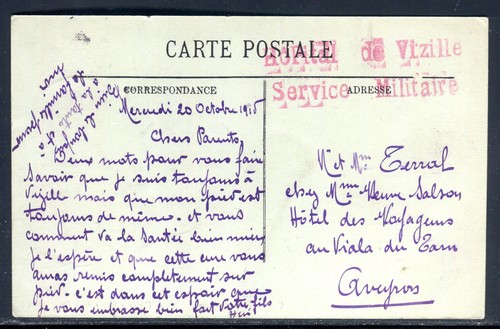 CARTE POSTALE
Hôpital de Vizille
Service Militaire
CORRESPONDANCE
ADRESSE
Mercredi 20 Octobre 1915
Chers Parents
Deux mots pour vous faire
savoir que je suis toujours à
Vizille mais que mon pied est
toujours de même. et vous
comment va la Santée bien mieu
je l'espère et que cette cure vous
auras remis completement sur
pied. c'est dans cet espoir que
je vous embrasse bien fort Votre fils
Mr et Mme Terral
chez Mme Veuve Salson
Hôtel des Voyageurs
au Viala du Tarn
Aveyron